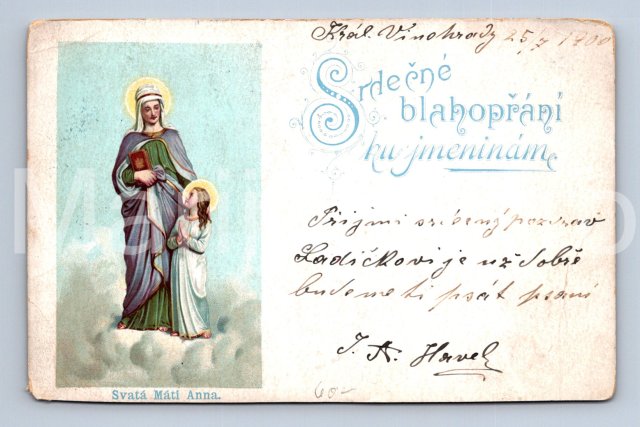 Král. Vinohrady 25/7 1900
Srdečné
blahopřání
ku jmeninám
Přijmi srdečný pozdrav
Ladíčkovi je už dobře
budeme ti psát psaní
J. A. Havel
60-
Svatá Máti Anna.